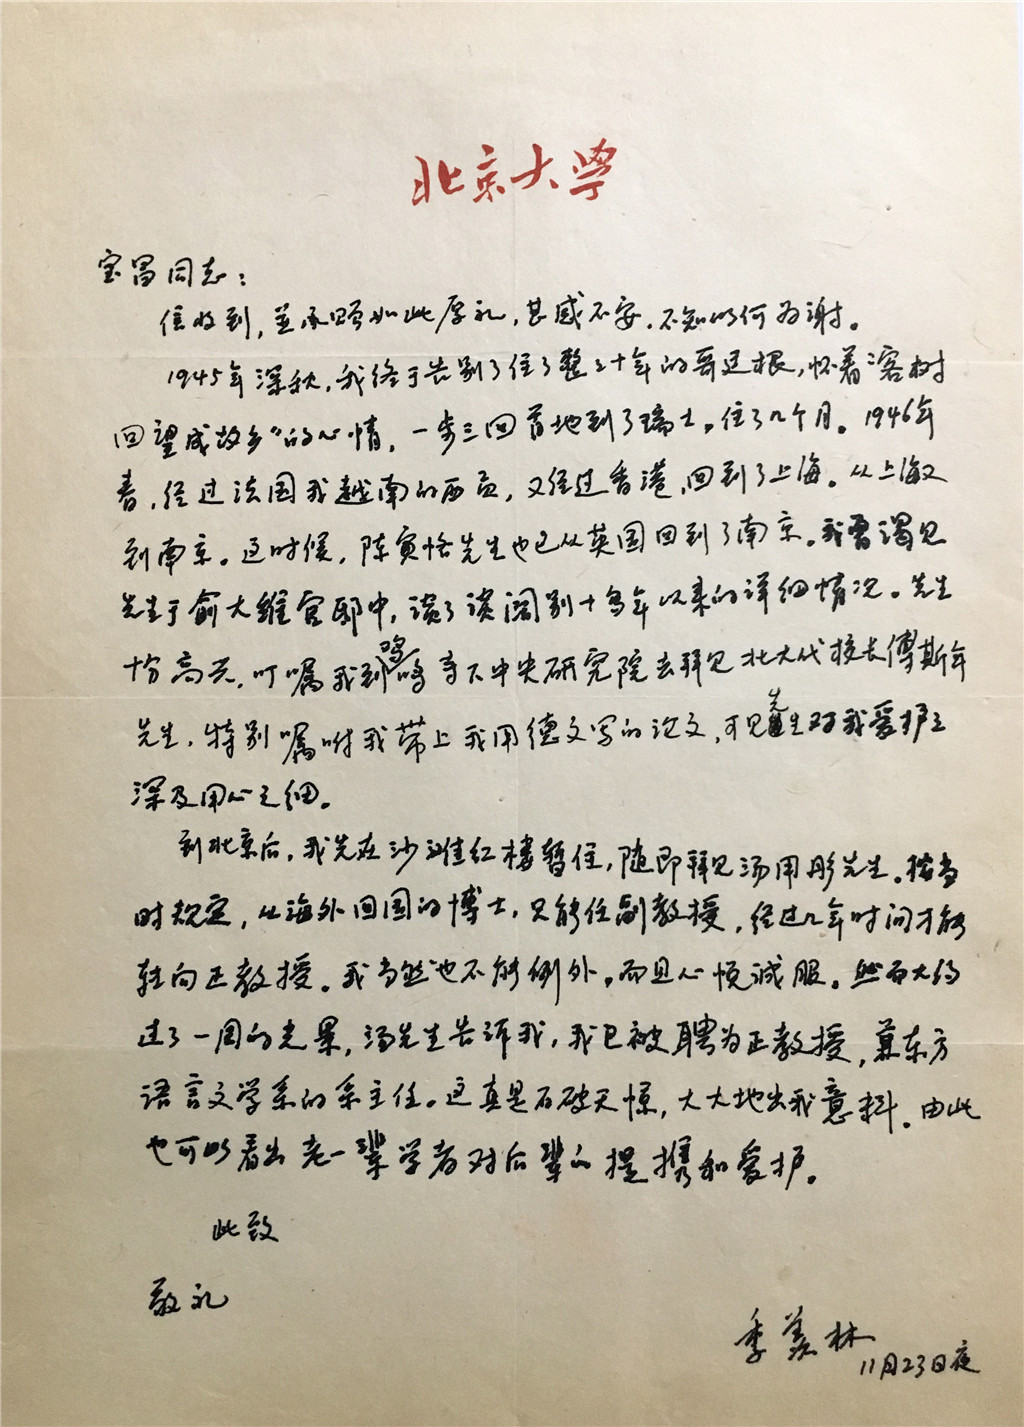 北京大学
宝昌同志：
信收到，并承赐如此厚礼，甚感不安，不知以何为谢。
1945年深秋，我终于告别了住了整整十年的哥廷根，怀着“客树
回望成故乡”的心情，一步三回首地到了瑞士，住了几个月。1946年
春，经过法国我越南的西贡，又经过香港，回到了上海。从上海又
到南京。这时候，陈寅恪先生也已从英国回到了南京。我曾谒见
先生于俞大维官邸中，谈了谈阔别十多年以来的详细情况。先生
十分高兴，叮嘱我到鸡鸣寺下中央研究院去拜见北大代校长傅斯年
先生，特别嘱咐我带上我用德文写的论文，可见先生对我爱护之
深及用心之细。
到北京后，我先在沙滩红楼暂住，随即拜见汤用彤先生。按当
时规定，从海外回国的博士，只能任副教授，经过几年时间才能
转向正教授。我当然也不能例外。而且心悦诚服。然而大约
过了一周的光景，汤先生告诉我，我已被聘为正教授，兼东方
语言文学系的系主任。这真是石破天惊，大大地出我意料。由此
也可以看出老一辈学者对后辈的提携和爱护。
此致
敬礼
季羡林
11月23日夜